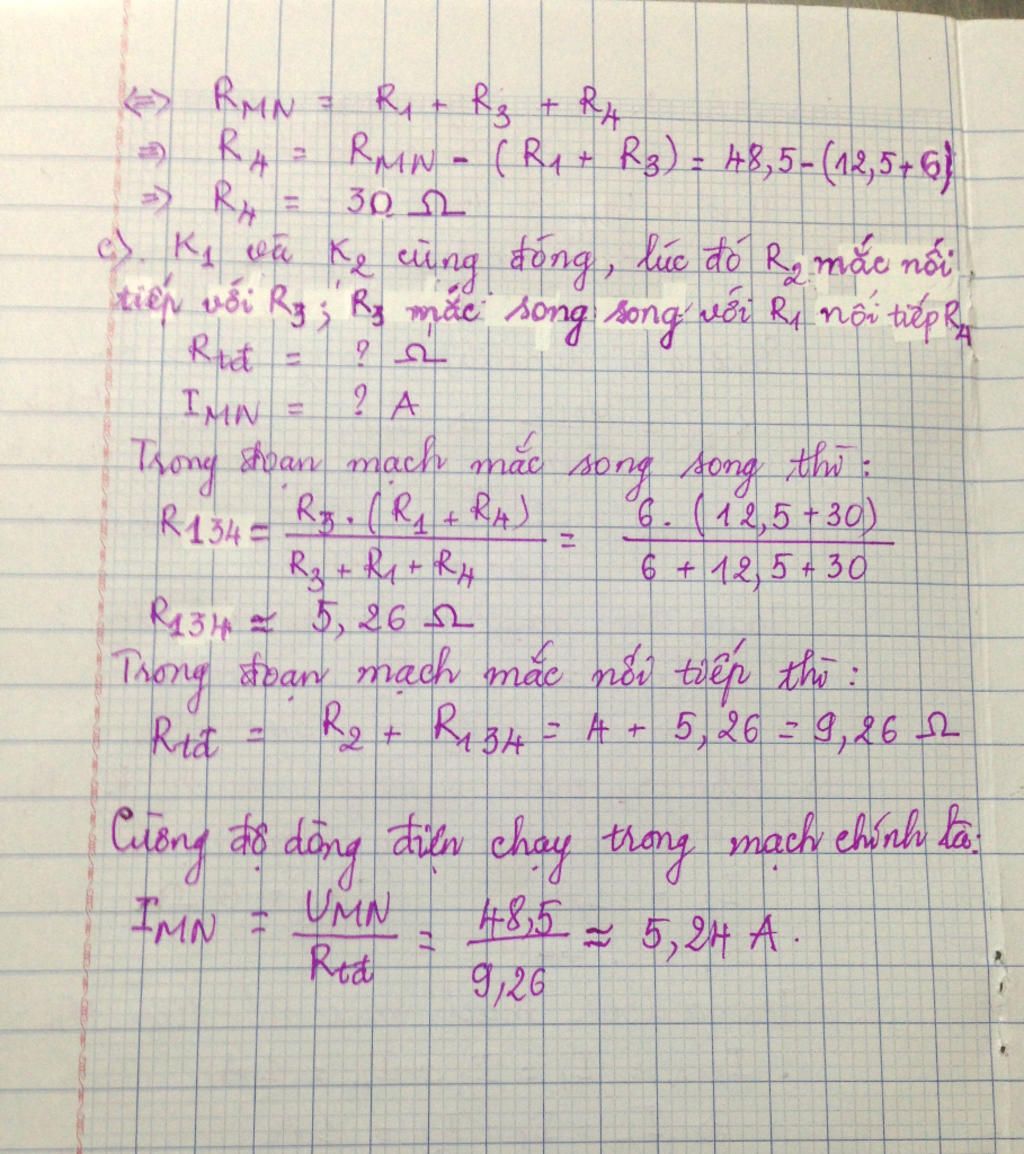 ⇔ R_MN = R_1 + R_3 + R_4
⇒ R_4 = R_MN - (R_1 + R_3) = 48,5 - (12,5 + 6)
⇒ R_4 = 30 Ω
c). K_1 và K_2 cùng đóng, lúc đó R_2 mắc nối
tiếp với R_3; R_3 mắc song song với R_1 nối tiếp R_4
R_tđ = ? Ω
I_MN = ? A
Trong đoạn mạch mắc song song thì:
R_134 = R_3 . (R_1 + R_4) / R_3 + R_1 + R_4 = 6 . (12,5 + 30) / 6 + 12,5 + 30
R_134 ≈ 5,26 Ω
Trong đoạn mạch mắc nối tiếp thì:
R_tđ = R_2 + R_134 = 4 + 5,26 = 9,26 Ω
Cường độ dòng điện chạy trong mạch chính là:
I_MN = U_MN / R_tđ = 48,5 / 9,26 ≈ 5,24 A.